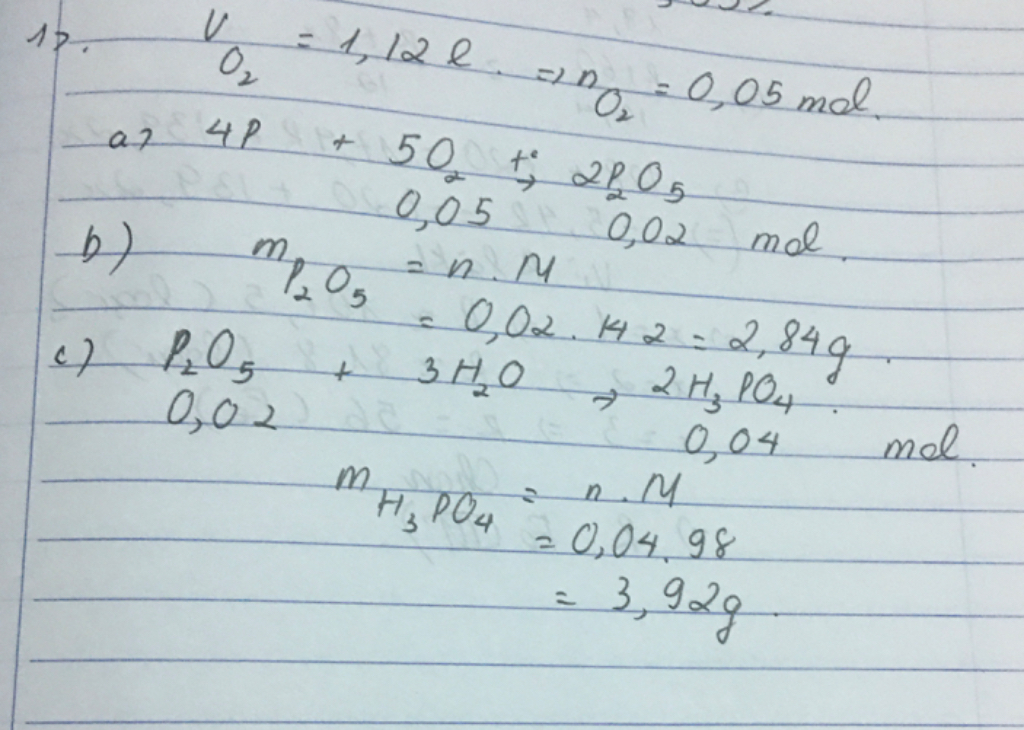 1). V O₂ = 1,12 l. => n O₂ = 0,05 mol.
a) 4P + 5O₂ t° → 2P₂O₅
0,05 0,02 mol.
b) m P₂O₅ = n. M
= 0,02. 142 = 2,84g.
c) P₂O₅ + 3H₂O → 2H₃PO₄.
0,02 0,04 mol.
m H₃PO₄ = n. M
= 0,04. 98
= 3,92g.